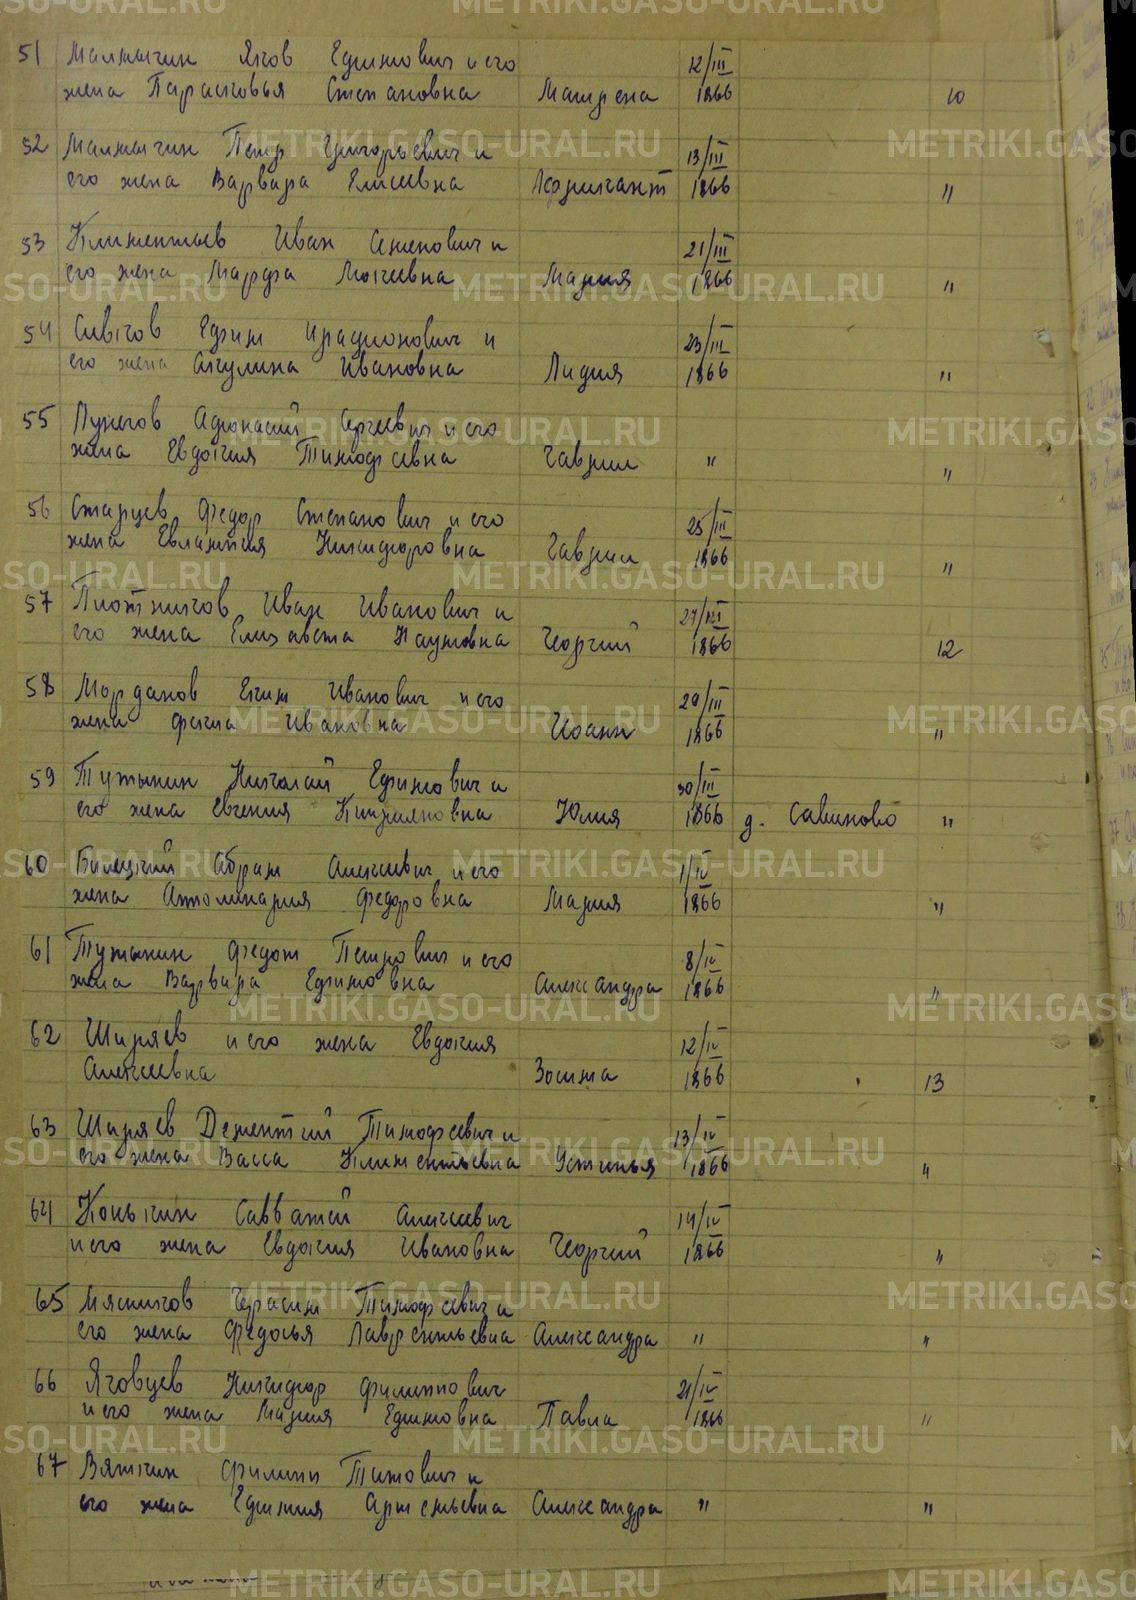 51 Малмыгин Яков Ефимович и его 12/III
жена Парасковья Степановна Матрена 1866 10
52 Малмыгин Петр Григорьевич и 13/III
его жена Варвара Елисеевна Африкант 1866 "
53 Климентьев Иван Семенович и 21/III
его жена Марфа Моисеевна Мария 1866 "
54 Сивков Ефим Иродионович и 23/III
его жена Акулина Ивановна Лидия 1866 "
55 Пунегов Афонасий Сергеевич и его
жена Евдокия Тимофеевна Гавриил " "
56 Старцев Федор Степанович и его 25/III
жена Евлампия Никифоровна Гавриил 1866 "
57 Плотников Иван Иванович и 27/III
его жена Елизавета Наумовна Георгий 1866 12
58 Морданов Еким Иванович и его 29/III
жена Фекла Ивановна Иоанн 1866 "
59 Тутынин Николай Ефимович и 30/III
его жена Евгения Киприяновна Юлия 1866 д. Савиново "
60 Билецкий Абрам Алексеевич и его 1/IV
жена Апполинария Федоровна Мария 1866 "
61 Тутынин Федот Петрович и его 8/IV
жена Варвара Ефимовна Александра 1866 "
62 Ширяев и его жена Евдокия 12/IV
Алексеевна Зосима 1866 13
63 Ширяев Дементий Тимофеевич и 13/IV
его жена Васса Климентьевна Устинья 1866 "
64 Конькин Савватий Алексеевич 14/IV
и его жена Евдокия Ивановна Георгий 1866 "
65 Мясников Герасим Тимофеевич и
его жена Федосья Лаврентьевна Александра " "
66 Яговцев Никифор Филиппович 21/IV
и его жена Мария Ефимовна Павла 1866 "
67 Вяткин Филипп Титович и
его жена Ефимия Артемьевна Александра " "
METRIKI.GASO-URAL.RU